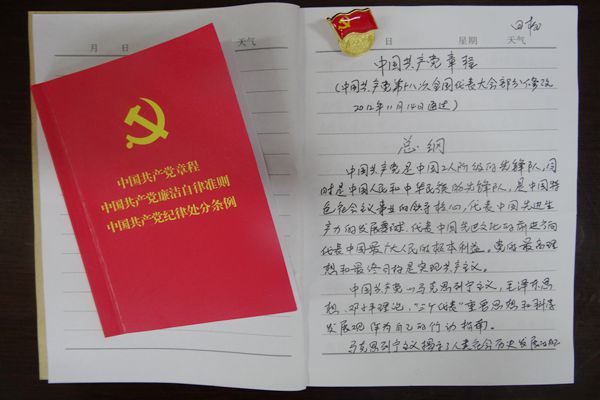 月 日 天气
中国共产党章程
中国共产党廉洁自律准则
中国共产党纪律处分条例
日 星期 天气
中国共产党章程
(中国共产党第十八次全国代表大会部分修改
2012年11月14日通过)
总纲
中国共产党是中国工人阶级的先锋队,同
时是中国人民和中华民族的先锋队,是中国特
色社会主义事业的领导核心,代表中国先进生
产力的发展要求,代表中国先进文化的前进方向
代表中国最广大人民的根本利益。党的最高理
想和最终目标是实现共产主义。
中国共产党以马克思列宁主义,毛泽东思
想、邓小平理论,“三个代表”重要思想和科学
发展观作为自己的行动指南。
马克思列宁主义揭示了人类社会历史发展的规